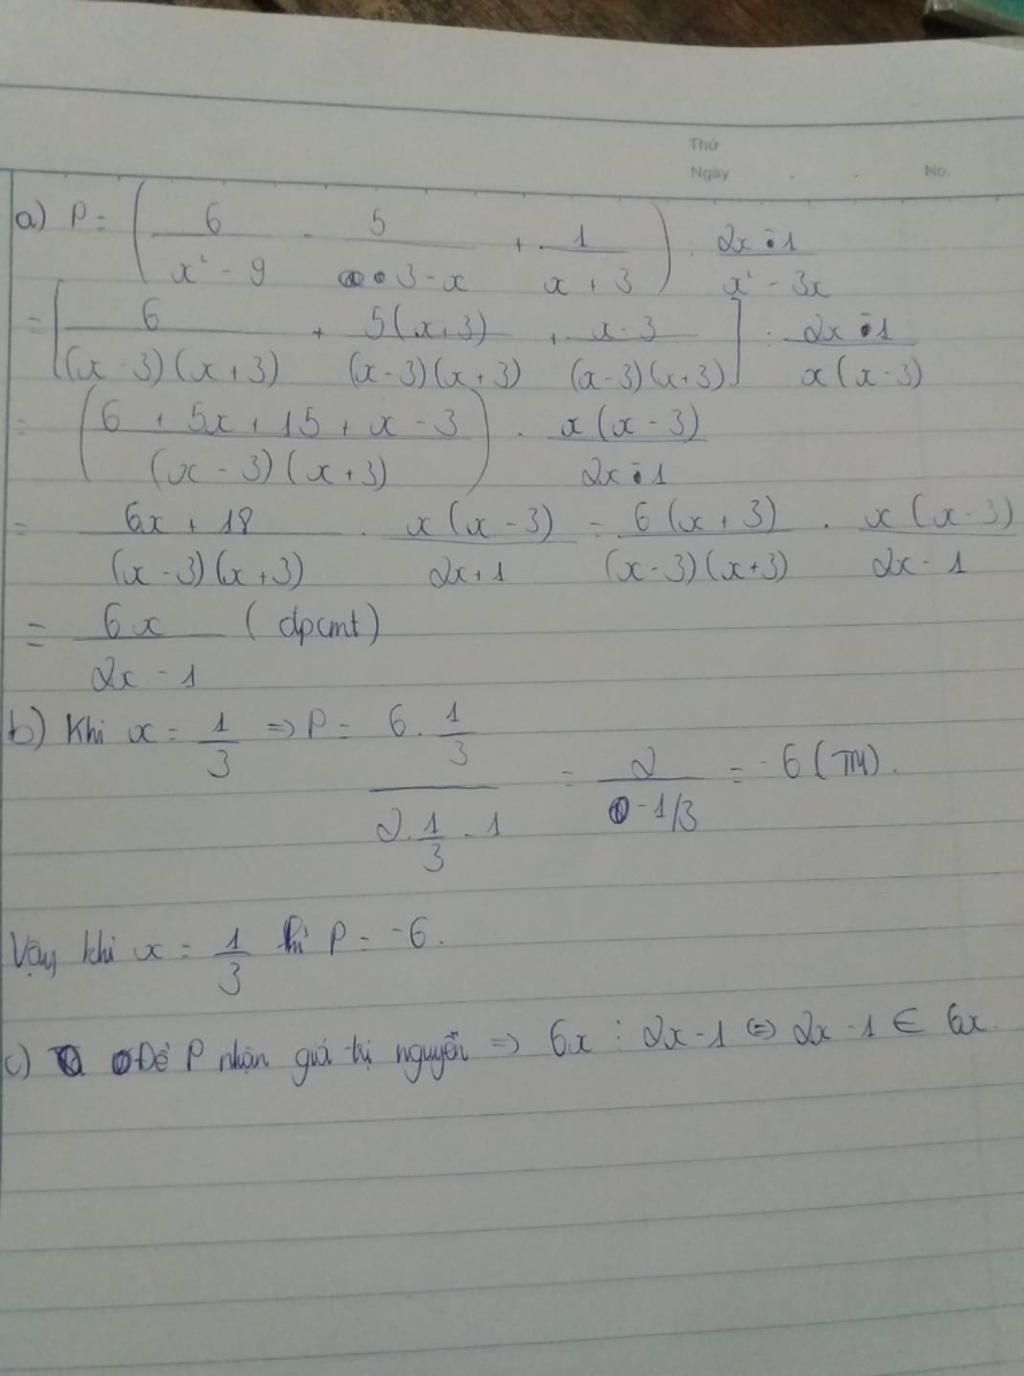 Thứ
Ngày . . No.
a) P = ( 6/(x² - 9) - 5/(3 - x) + 1/(x + 3) ) : (2x - 1)/(x² - 3x)
= [ 6/((x - 3)(x + 3)) + 5(x + 3)/((x - 3)(x + 3)) + (x - 3)/((x - 3)(x + 3)) ] : (2x - 1)/(x(x - 3))
= ( (6 + 5x + 15 + x - 3)/((x - 3)(x + 3)) ) . x(x - 3)/(2x - 1)
= (6x + 18)/((x - 3)(x + 3)) . x(x - 3)/(2x + 1) = 6(x + 3)/((x - 3)(x + 3)) . x(x - 3)/(2x - 1)
= 6x/(2x - 1) (dpcmt)
b) Khi x = 1/3 => P = (6 . 1/3)/(2 . 1/3 - 1) = 2/(-1/3) = -6 (TM).
Vậy khi x = 1/3 thì P = -6.
c) Để P nhận giá trị nguyên => 6x ⋮ 2x - 1 <=> 2x - 1 ∈ 6x.